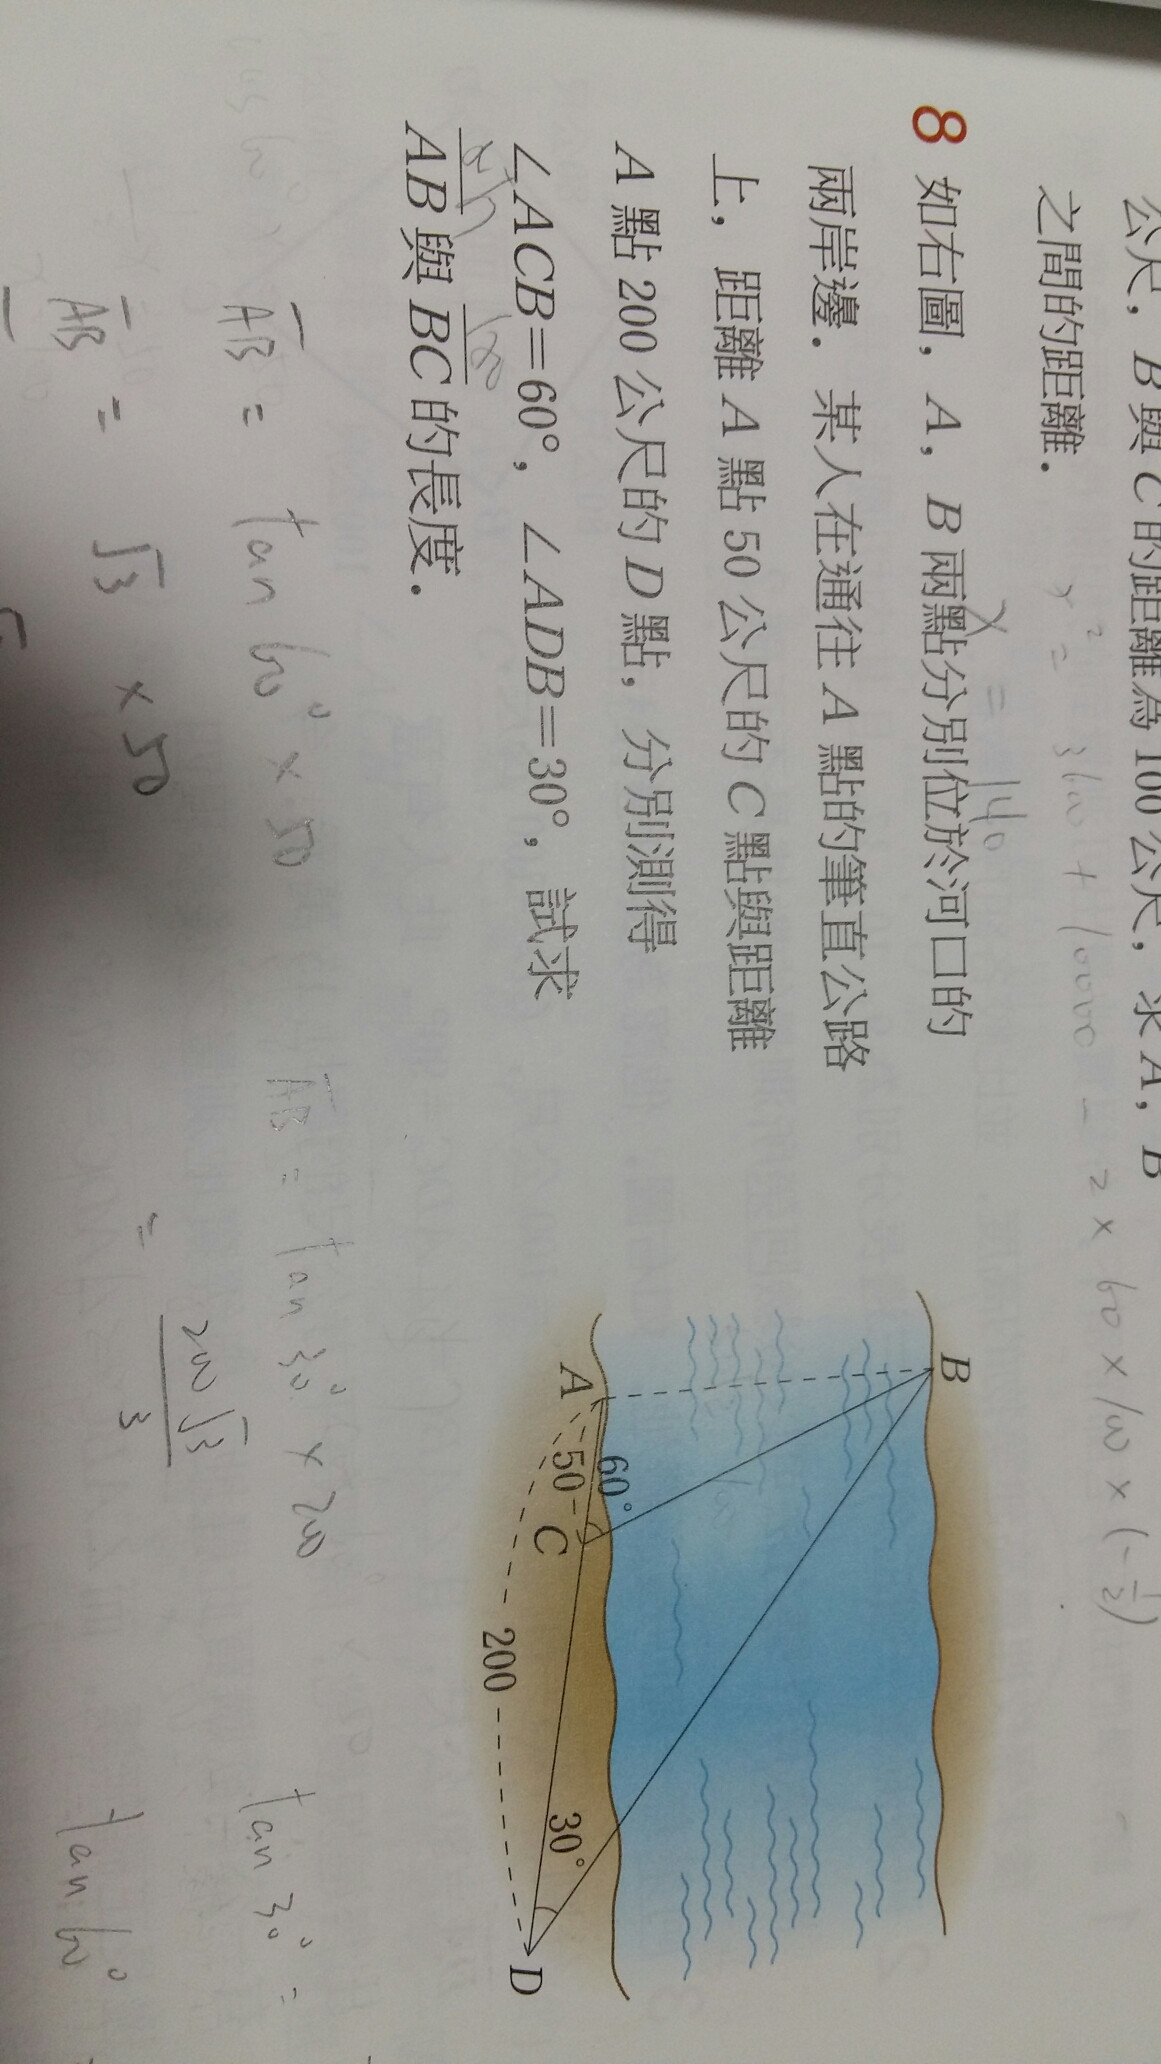 公尺，B與C的距離為100公尺，求A，B
之間的距離．
x² = 3600 + 10000 - 2 × 60 × 100 × (-1/2)
x = 140
8 如右圖，A，B兩點分別位於河口的
兩岸邊．某人在通往A點的筆直公路
上，距離A點50公尺的C點與距離
A點200公尺的D點，分別測得
∠ACB=60°，∠ADB=30°，試求
AB與BC的長度．
B
A
60°
50
C
200
30°
D
AB = tan 60° × 50
AB = √3 × 50
AB = tan 30° × 200
= 200√3/3
tan 30° =
tan 60°